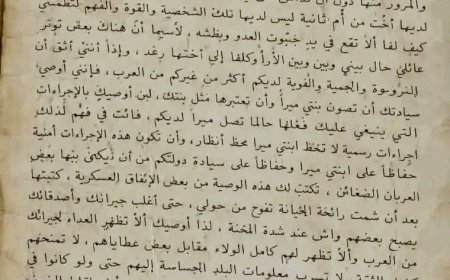 والمرور منها دون أن
لديها أخت من أم ثانية ليس لديها تلك الشخصية والقوة والفهم لتطمئني
كيف لها ألا تقع في يد جبروت العدو وبطشه. لاسيما أن هناك بعض توتر
عائلي حال بيني وبين الأرأ وكلفا إلى أختها رغد، وإذاً أنني أثق أن
النزوعة والحمية والقوية لديكم أكثر من غيركم من العرب، فإنني أوصي
سيادتك أن تصون بنتي ميرا وأن تعتبرها مثل بنتك، لن أوصيك بالإجراءات
التي ينبغي عليك فعلها حالما تصل ميرا لديكم، فانت في فهم لذلك
إجراءات رسمية لا تخط ابنتي ميرا محظ أنظار، وأن تكون هذه الإجراءات أمنية
حفاظاً على ابنتي ميرا وحفاظاً على سيادة دولتكم من أن ذيكن بنها بعض
العربان الضغائن، تكتب لك هذه الوصية من بعض الإنفاق العسكرية، كتبتها
بعد أن شمت رائحة الخيانة تفوح من حولي، حتى أغلب جيرانك وأصدقائك
يصبح بعضهم واش عند شدة المحنة، لذا أوصيك ألا تظهر العداء لجيرانك
من العرب وألا تظهر لهم كامل الولاء مقابل بعض عطاياهم، لا تمنحهم
الثقة ولا تسرب معلومات البلد الحساسة إليهم حتى ولو كانوا في